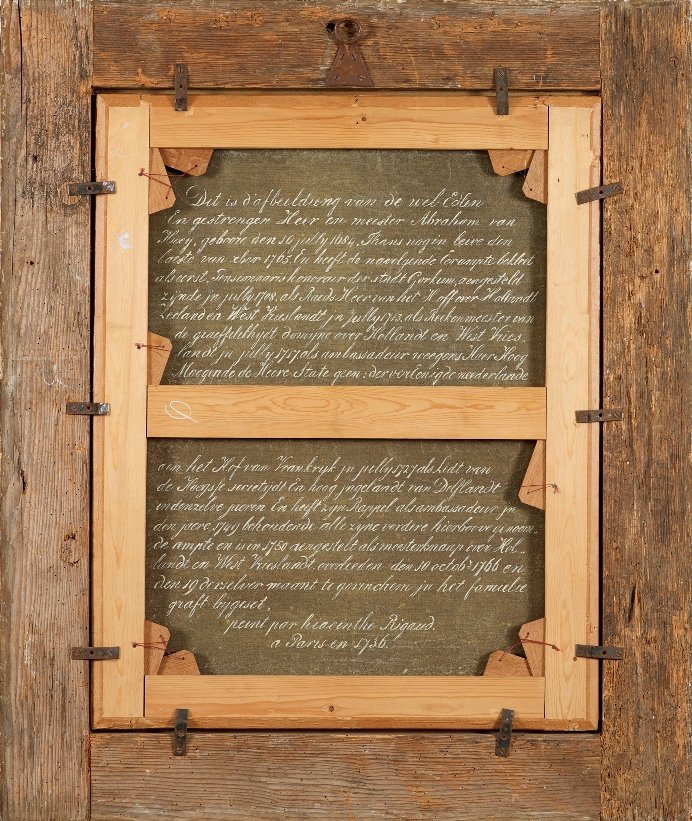 Dit is d'afbeildinng van de wel Eden
En gestrengen Heer en meester Abraham van
Hoey, geboore den 10 jully 1684, Thans nog in leive den
laaste van xber 1765. En heeft de naervlgende Eeraampte bekleet
als eerst, Pensionnaris honorair der stadt Gorkum, aengesteld
zijnde jn july 1708, als Raeds Heer van het Hoff over Hollandt
Zeeland en West Vrieslandt jn Jully 1713, als Reekenmeester van
de graeffelikhydt domijne over Hollandt en West Vries,
landt jn july 1717 als ambassadeur weegens Haer Hoog
Moegende de Heere State geen: der verEenigde neederlande
aen het Hof van Vrankryk jn jully 1727 als Lidt van
de Hoogste societydt En hoog jngelandt van Delflandt
in denzelve jaaren En heeft zyn Rappel als ambassadeur jn
den jaere 1749 behoudende alle zyne verdere hierboove genoem-
de ampte en is in 1750 aengestelt als meesterknaap over Hol-
landt en West Vrieslandt, overleeden den 10 octobr 1766 en
den 19 derselver maant te gorinchem jn het familie
graft bijgeset,
peint par hiacinthe Rigaud.
a Paris en 1736.